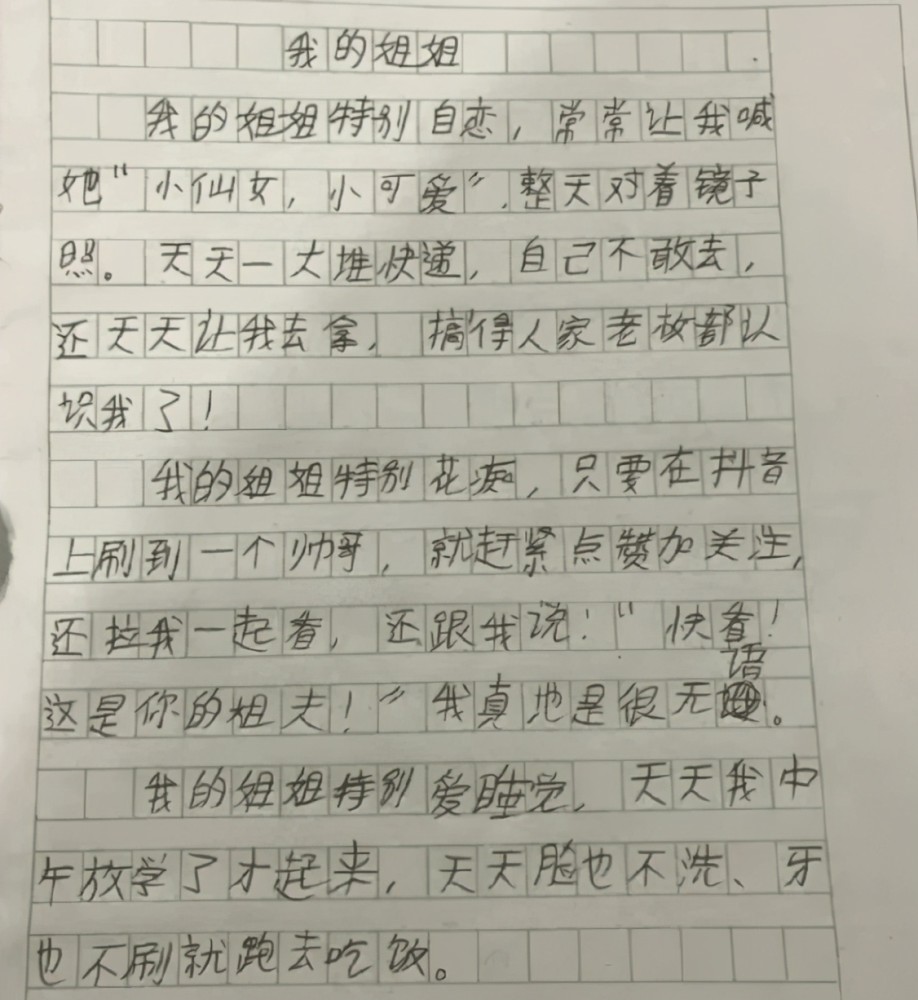 我的姐姐
我的姐姐特别自恋，常常让我喊
她“小仙女，小可爱”，整天对着镜子
照。天天一大堆快递，自己不敢去，
还天天让我去拿，搞得人家老板都认
识我了！
我的姐姐特别花痴，只要在抖音
上刷到一个帅哥，就赶紧点赞加关注，
还拉我一起看，还跟我说：“快看！
这是你的姐夫！”我真地是很无语。
我的姐姐特别爱睡觉，天天我中
午放学了才起来，天天脸也不洗、牙
也不刷就跑去吃饭。